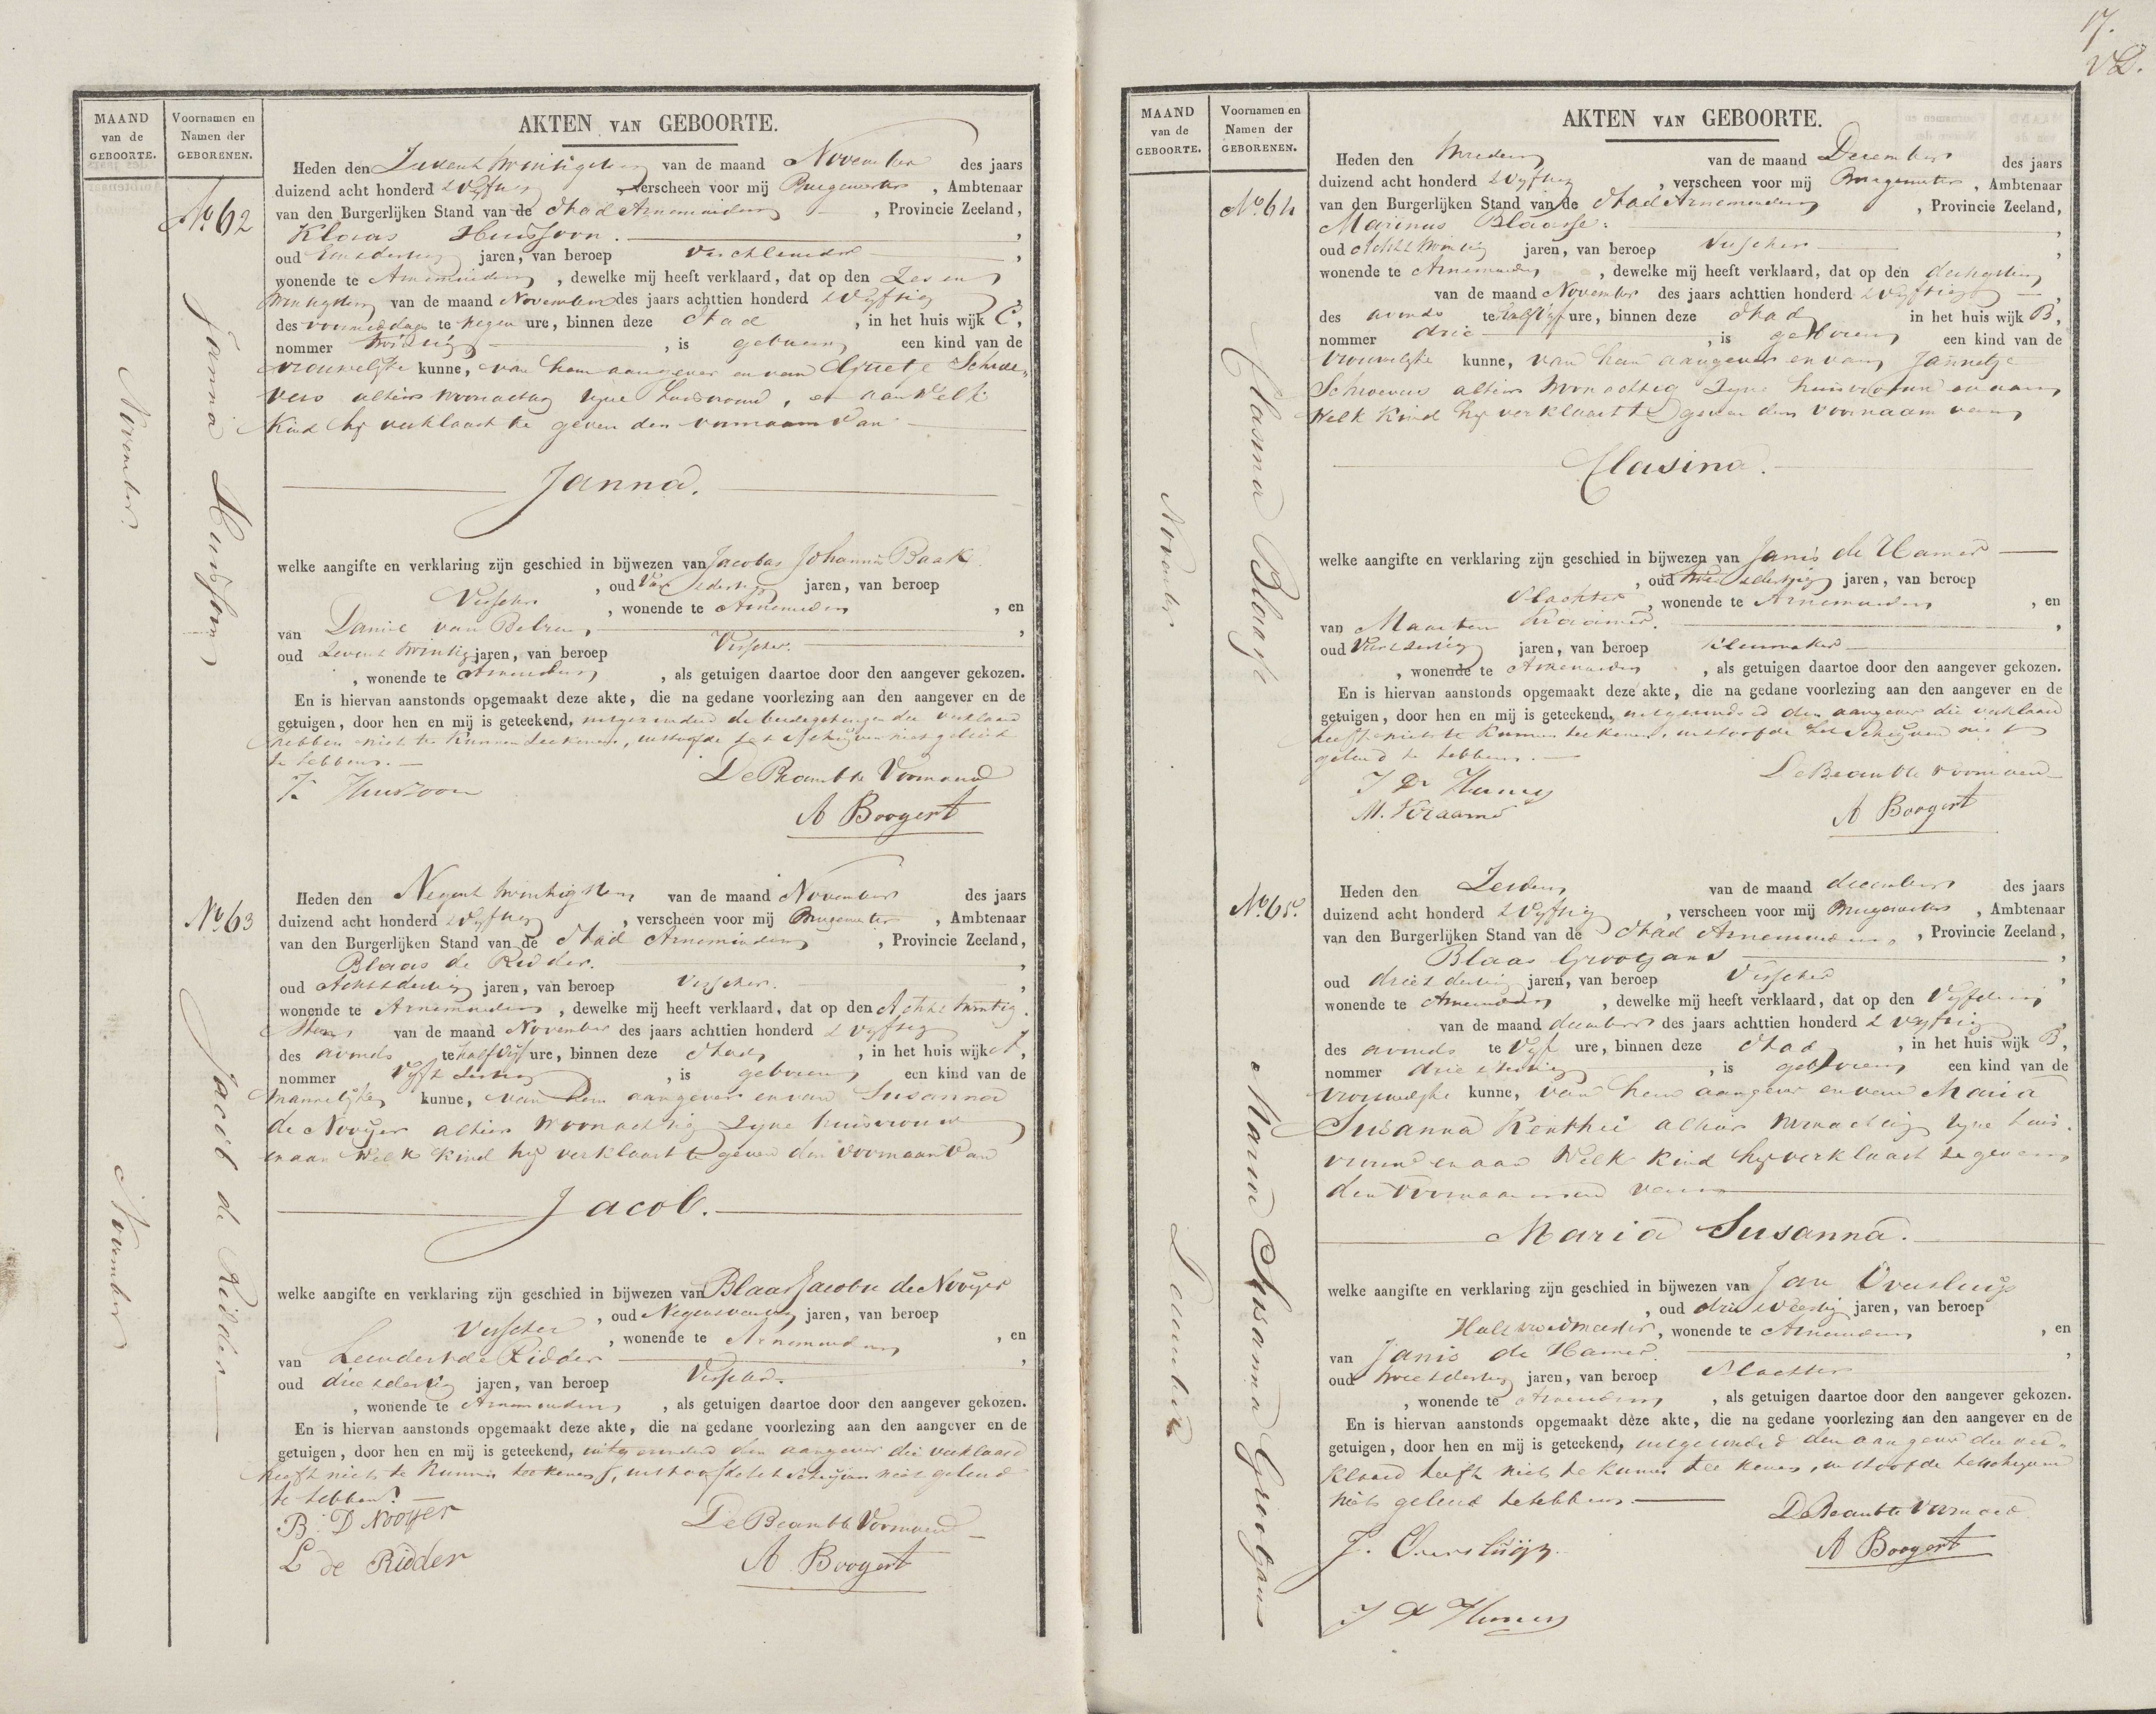 17.
MAAND
van de
GEBOORTE.
Voornamen en
Namen der
GEBORENEN.
AKTEN VAN GEBOORTE.
No 62
Janna Huissoon
November
Heden den Zevent twintigsten van de maand November des jaars
duizend acht honderd vyftig verscheen voor mij Burgemeester, Ambtenaar
van den Burgerlijken Stand van de Stad Arnemuiden, Provincie Zeeland,
Klaas Huissoon.
oud Eendertig jaren, van beroep
wonende te Arnemuiden, dewelke mij heeft verklaard, dat op den Zes en
twintigsten van de maand November des jaars achttien honderd vyftig
des voormiddags te negen ure, binnen deze Stad, in het huis wijk C,
nommer twintig, is geboren een kind van de
vrouwelyke kunne, van hem aangever en van Schroe-
vers alhier woonachtig zyne huisvrouw, en aan welk
kind hy verklaart te geven den voornaam van
Janna.
welke aangifte en verklaring zijn geschied in bijwezen van Jacobus Johannis Baak
, oud dertig jaren, van beroep
Visscher, wonende te Arnemuiden, en
van Daniel van Belzen,
oud Zevent twintig jaren, van beroep Visscher.
, wonende te Arnemuiden, als getuigen daartoe door den aangever gekozen.
En is hiervan aanstonds opgemaakt deze akte, die na gedane voorlezing aan den aangever en de
getuigen, door hen en mij is geteekend, uitgezonderd de beide getuigen die verklaard
hebben niet te kunnen teekenen, uithoofde het schryven niet geleerd
te hebben.
K. Huissoon
De Beambte Voornoemd
A Boogert
No 63
Jacob de Ridder
November
Heden den Negent twintigsten van de maand November des jaars
duizend acht honderd vyftig, verscheen voor mij Burgemeester, Ambtenaar
van den Burgerlijken Stand van de Stad Arnemuiden, Provincie Zeeland,
Blaas de Ridder.
oud Acht dertig jaren, van beroep Visscher.
wonende te Arnemuiden, dewelke mij heeft verklaard, dat op den Acht twintig
sten van de maand November des jaars achttien honderd vyftig
des avonds te half vyf ure, binnen deze Stad, in het huis wijk
nommer Vyf dertig, is geboren een kind van de
mannelyke kunne, van hem aangever en van Susanna
de Nooyer alhier woonachtig zyne huisvrouw
en aan welk kind hy verklaart te geven den voornaam van
Jacob.
welke aangifte en verklaring zijn geschied in bijwezen van Blaas Jacobse de Nooyer
, oud jaren, van beroep
Visscher, wonende te Arnemuiden, en
van Leendert de Ridder
oud drie dertig jaren, van beroep Visscher.
, wonende te Arnemuiden, als getuigen daartoe door den aangever gekozen.
En is hiervan aanstonds opgemaakt deze akte, die na gedane voorlezing aan den aangever en de
getuigen, door hen en mij is geteekend, uitgezonderd den aangever die verklaard
heeft niet te kunnen teekenen, uithoofde het schryven niet geleerd
te hebben.
B. D Nooyer
L de Ridder
De Beambte Voornoemd
A Boogert
MAAND
van de
GEBOORTE.
Voornamen en
Namen der
GEBORENEN.
AKTEN VAN GEBOORTE.
No. 64
Clasina Blaasse
November
Heden den tweeden van de maand December des jaars
duizend acht honderd vyftig, verscheen voor mij Burgemeester, Ambtenaar
van den Burgerlijken Stand van de Stad Arnemuiden, Provincie Zeeland,
Marinus Blaasse.
oud Acht twintig jaren, van beroep Visscher
wonende te Arnemuiden, dewelke mij heeft verklaard, dat op den dertigsten
van de maand November des jaars achttien honderd vyftig
des avonds te half vyf ure, binnen deze Stad in het huis wijk B,
nommer drie, is geboren een kind van de
vrouwelyke kunne, van hem aangever en van Jannetje
Schroevers alhier woonachtig zyne huisvrouw en aan
welk kind hy verklaart te geven den voornaam van
Clasina.
welke aangifte en verklaring zijn geschied in bijwezen van Janis de Hamer
, oud twee dertig jaren, van beroep
Slachter, wonende te Arnemuiden, en
van Maarten Kraamer.
oud dertig jaren, van beroep Kleermaker
, wonende te Arnemuiden, als getuigen daartoe door den aangever gekozen.
En is hiervan aanstonds opgemaakt deze akte, die na gedane voorlezing aan den aangever en de
getuigen, door hen en mij is geteekend, uitgezonderd den aangever die verklaard
heeft niet te kunnen teekenen, uithoofde het schryven niet
geleerd te hebben.
J De Hamer
M. Kraamer
De Beambte voornoemd
A Boogert
No. 65.
Maria Susanna Grootjans
December
Heden den Zesden van de maand december des jaars
duizend acht honderd vyftig, verscheen voor mij Burgemeester, Ambtenaar
van den Burgerlijken Stand van de Stad Arnemuiden, Provincie Zeeland,
Blaas Grootjans
oud drie dertig jaren, van beroep Visscher
wonende te Arnemuiden, dewelke mij heeft verklaard, dat op den Vyfden
van de maand december des jaars achttien honderd vyftig
des avonds te Vyf ure, binnen deze Stad, in het huis wijk B,
nommer drie, is geboren een kind van de
vrouwelyke kunne, van hem aangever en van Maria
Susanna alhier woonachtig zyne huis-
vrouw en aan welk kind hy verklaart te geven
den voornaamen van
Maria Susanna.
welke aangifte en verklaring zijn geschied in bijwezen van Jan Oversluijs
, oud drie veertig jaren, van beroep
, wonende te Arnemuiden, en
van Janis de Hamer.
oud twee dertig jaren, van beroep Slachter
, wonende te Arnemuiden, als getuigen daartoe door den aangever gekozen.
En is hiervan aanstonds opgemaakt deze akte, die na gedane voorlezing aan den aangever en de
getuigen, door hen en mij is geteekend, uitgezonderd den aangever die ver-
klaard heeft niet te kunnen teekenen, uithoofde het schryven
niet geleerd te hebben.
J. Oversluijs.
J D Hamer
De Beambte Voornoemd
A Boogert